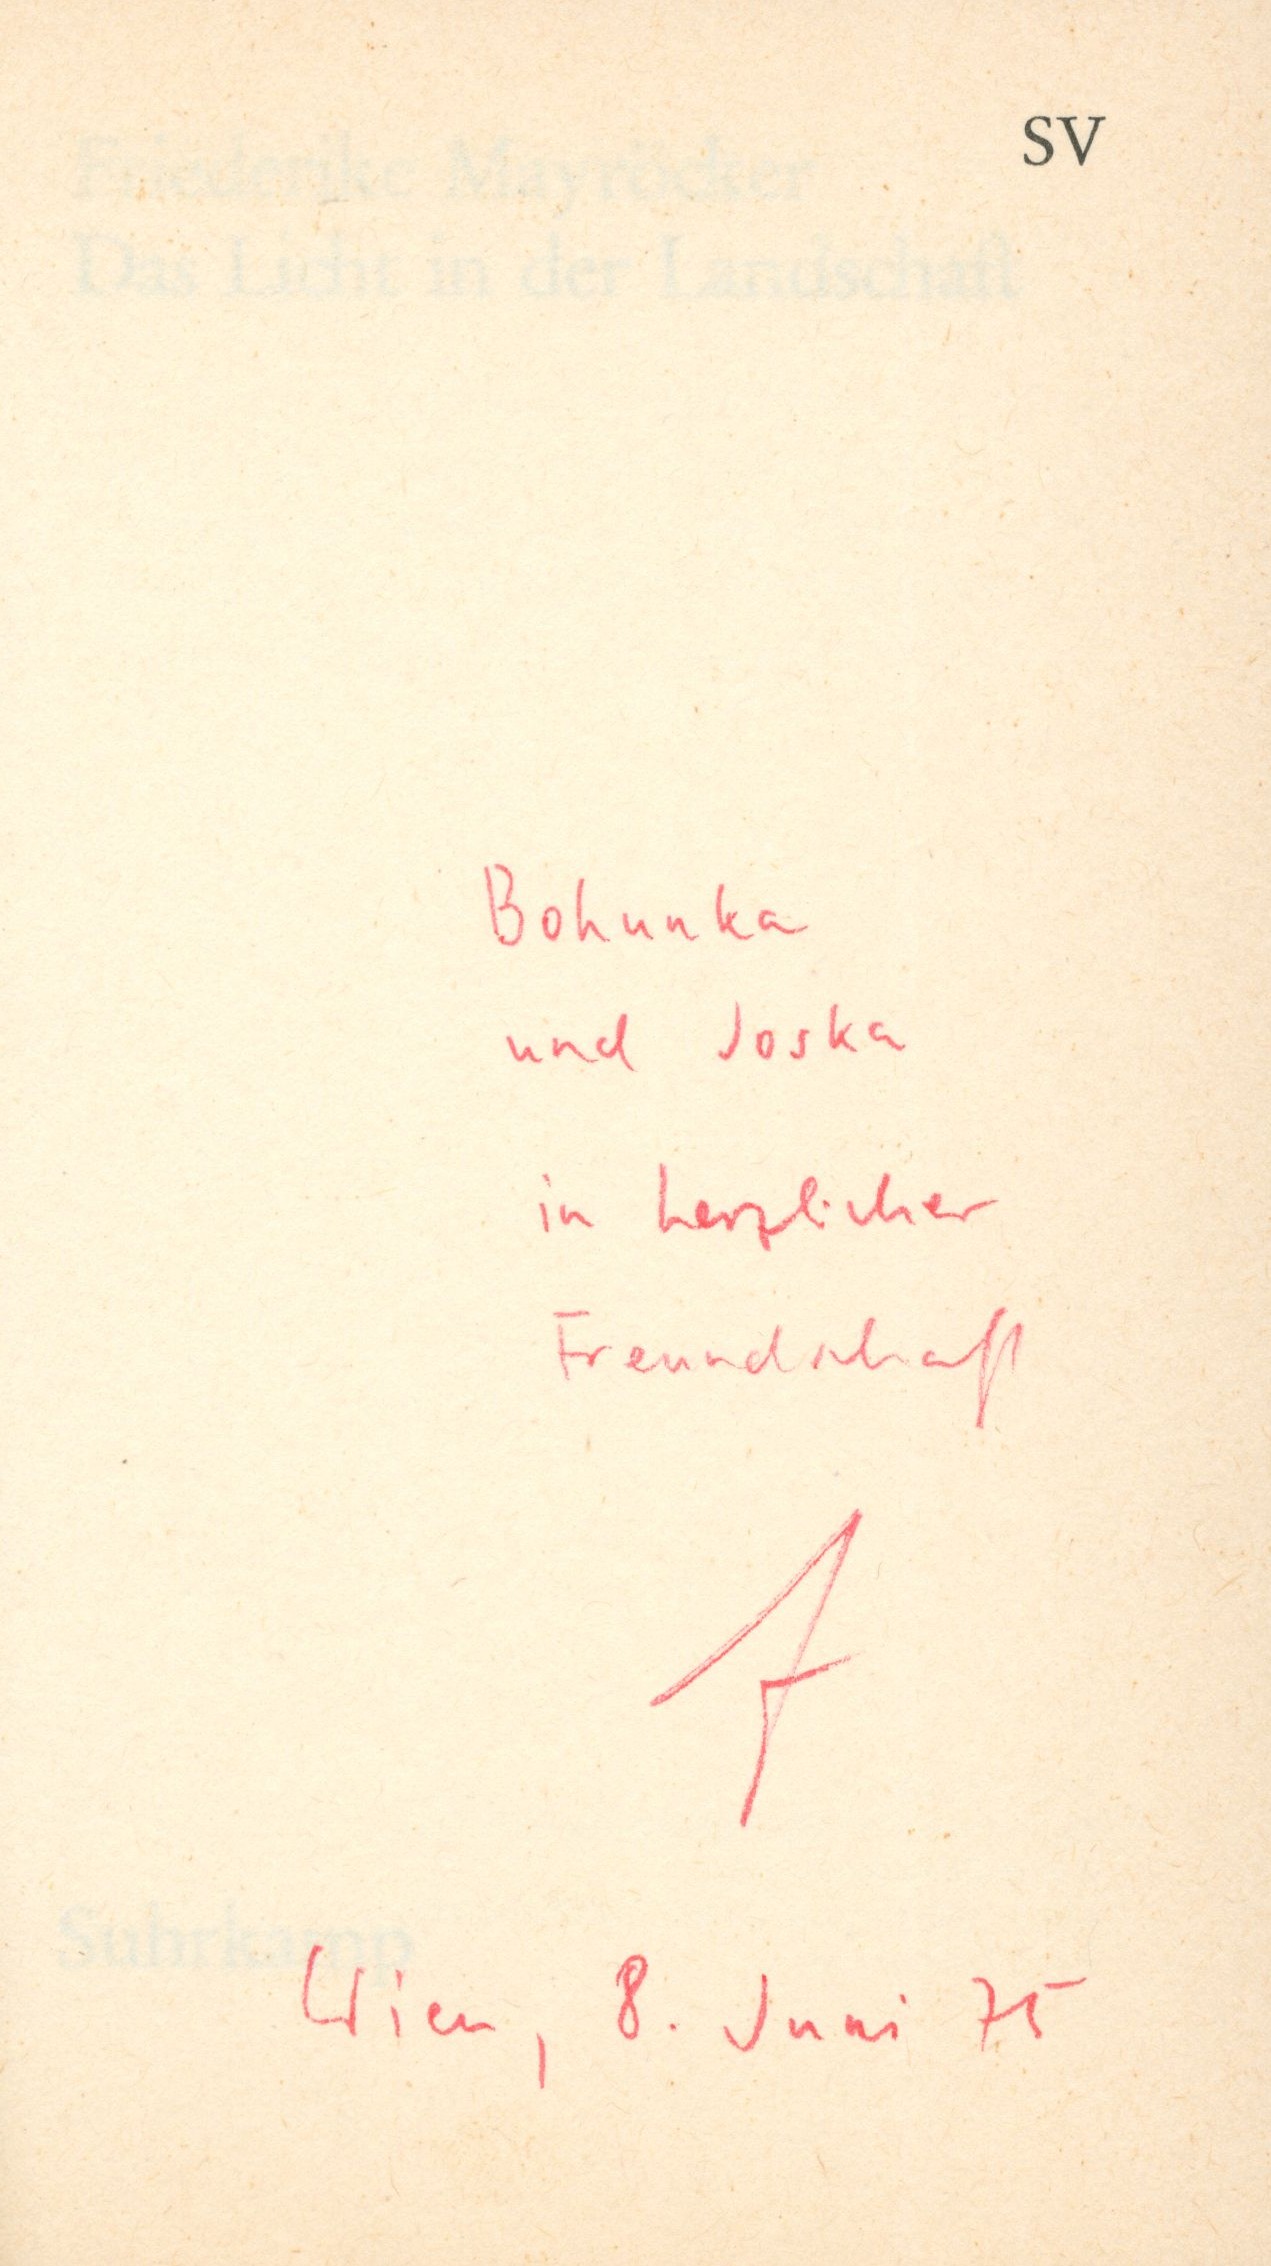 SV
Friederike Mayröcker
Das Licht in der Landschaft
Bohunka
und Joska
in herzlicher
Freundschaft
F
Suhrkamp
Wien, 8. Juni 75